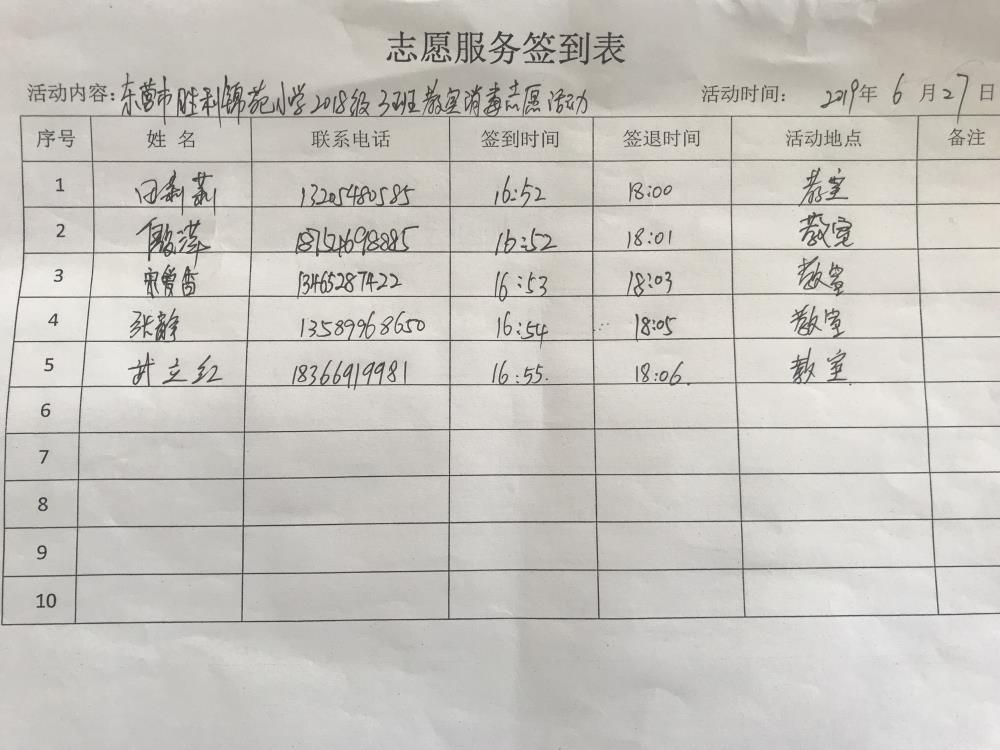 志愿服务签到表
活动内容:东营市胜利锦苑小学2018级3班教室消毒志愿活动 活动时间: 2019年 6 月27日
序号 姓 名 联系电话 签到时间 签退时间 活动地点 备注
1 田莉莉 13205480585 16:52 18:00 教室
2 殷萍 18754698885 16:52 18:01 教室
3 宋爱香 13465287422 16:53 18:03 教室
4 张静 13589968650 16:54 18:05 教室
5 武立红 18366919981 16:55. 18:06. 教室
6
7
8
9
10